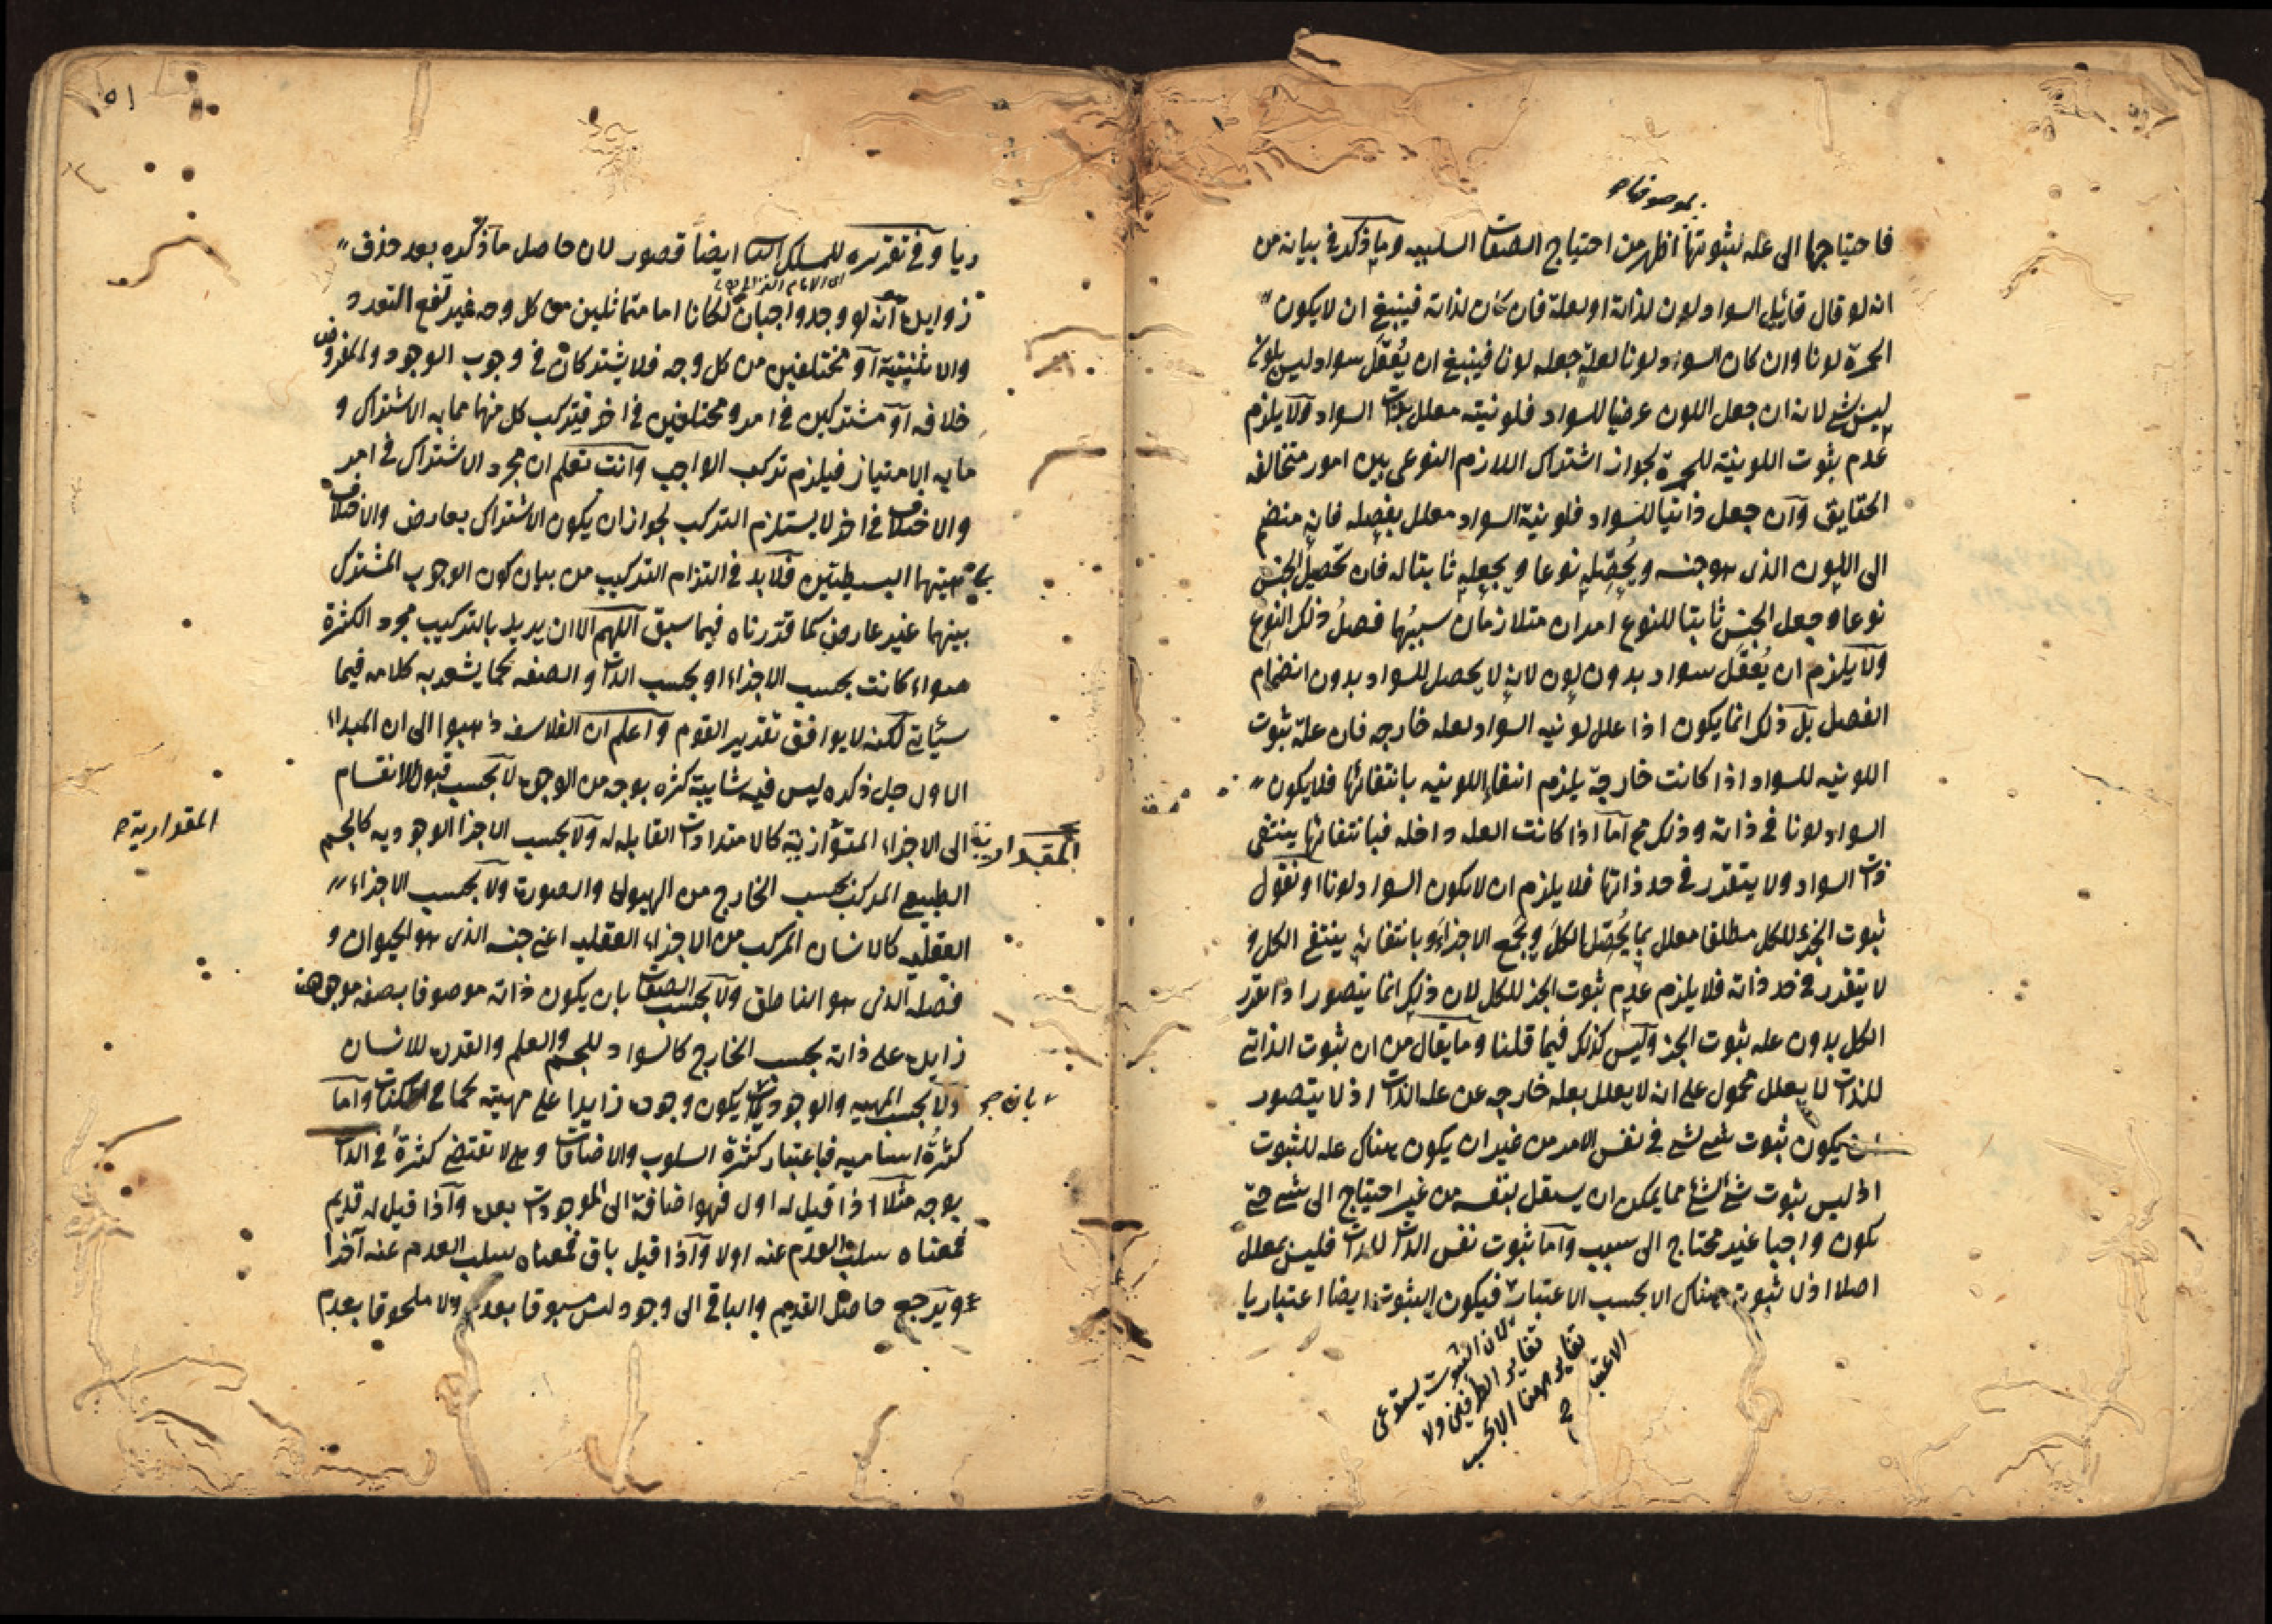 بموصوفها صح
فاحتياجها الى علة لثبوتها اظهر من احتياج الصفات السلبيه وما ذكر في بيانه من
انه لو قال قائل السواد لون لذاته او لعلة فان كان لذاته فينبغي ان لا يكون
الحمرة لونا وان كان السواد لونا لعلة جعله لونا فينبغي ان يُعقل سواد ليس بلون
ليس بشي لانه ان جعل اللون عرضيا للسواد فلونيته معلل بذات السواد ولا يلزم
عدم ثبوت اللونية للحمرة لجواز اشتراك اللازم النوعى بين امور متخالفه
الحقايق وان جعل ذاتيا للسواد فلونية السواد معلل بفصله فانه منضم
الى اللون الذى هو جنسه ويُحصّله نوعا ويجعله ثابتا له فان تحصيل الجنس
نوعا وجعل الجنس ثابتا للنوع امران متلازمان سببُهما فصلُ ذلك النوع
ولا يلزم ان يُعقل سواد بدون لون لانه لا يحصل للسواد بدون انضمام
الفصل بل ذلك انما يكون اذا علل لونيه السواد لعله خارجه فان علة ثبوت
اللونيه للسواد اذا كانت خارجة يلزم انتفاء اللونيه بانتفائها فلا يكون
السواد لونا في ذاته وذلك مح اما اذا كانت العله داخله فبانتفائها ينتفى
ذات السواد ولا يتقرر في حد ذاتها فلا يلزم ان لا يكون السواد لونا او نقول
ثبوت الجزء للكل مطلقا معلل بما يُحصّل الكل ويجمع الاجزاء وبانتفائه ينتفي الكل و
لا يتقرر في حد ذاته فلا يلزم عدم ثبوت الجز للكل لان ذلك انما يتصور اذا تقرر
الكل بدون عله ثبوت الجز وليس كذلك فيما قلنا وما يقال من ان ثبوت الذاتي
للذات لا يعلل محمول على انه لا يعلل بعله خارجه عن عله الذات اذ لا يتصور
ان يكون ثبوت شي لشي في نفس الامر من غير ان يكون هناك عله للثبوت
اذ ليس ثبوت شئ لشئ مما يمكن ان يستقل بنفسه من غير احتياج الى شي حتى
يكون واجبا غير محتاج الى سبب واما ثبوت نفس الذات للذات فليس يعلل
اصلا اذ لا ثبوت هناك الا بحسب الاعتبار فيكون الثبوت ايضا اعتباريا
لان الثبوت يستدعى
تغاير الطرفين ولا
تغاير ههنا الا بحسب
الاعتبار
٥١
ريا وفي تقريره للمسلك ايضاً قصور لان حاصل ما ذكره بعد حذف
اى الامام الغزالي
زوايده انه لو وجد واجبان لكانا اما متماثلين من كل وجه فيرتفع التعدد
والاثنينية او مختلفين من كل وجه فلا يشتركان في وجوب الوجود والمفروض
خلافه او مشتركين في امر ومختلفين في اخر فيتركب كل منهما مما به الاشتراك و
ما به الامتياز فيلزم تركب الواجب وانت تعلم ان مجرد الاشتراك في امر
والاختلاف في اخر لا يستلزم التركب لجواز ان يكون الاشتراك بعارض والاختلاف
بماهيتهما البسيطتين فلا بد في التزام التركيب من بيان كون الوجوب المشترك
بينهما غير عارض كما قررناه فيما سبق اللهم الا ان يريد بالتركيب مجرد الكثرة
سواء كانت بحسب الاجزاء او بحسب الذات والصفه كما يشعر به كلامه فيما
سيأتي لكنه لا يوافق تقرير القوم واعلم ان الفلاسفه ذهبوا الى ان المبداء
الاول جل ذكره ليس فيه شايبة كثره بوجه من الوجوه لا بحسب قبول الانقسام
الى الاجزاء المتوازية كالامتدادات القابله له ولا بحسب الاجزا الوجوديه كالجسم
المقدارية
المقدارية صح
الطبيعي المركب بحسب الخارج من الهيولى والصورة ولا بحسب الاجزاء
العقليه كالانسان المركب من الاجزاء العقليه اعني جنسه الذى هو الحيوان و
فصله الذى هو الناطق ولا بحسب الصفات بان يكون ذاته موصوفا بصفه موجوده
زايده على ذاته بحسب الخارج كالسواد للجسم والعلم والقدره للانسان
ولا بحسب المهيه والوجود يكون وجوده زايدا على مهيته كما في الممكنات واما
بان صح
كثرة اساميه فباعتبار كثرة السلوب والاضافات وهي لا تقتضي كثرة في الذات
بوجه مثلا اذا قيل له اول فهو اضافة الى الموجودات بعده واذا قيل له قديم
فمعناه سلب العدم عنه اولا واذا قيل باق فمعناه سلب العدم عنه آخرا
ويرجع حاصل القديم والباقي الى وجود ليس مسبوقا بعدم ولا ملحوقا بعدم